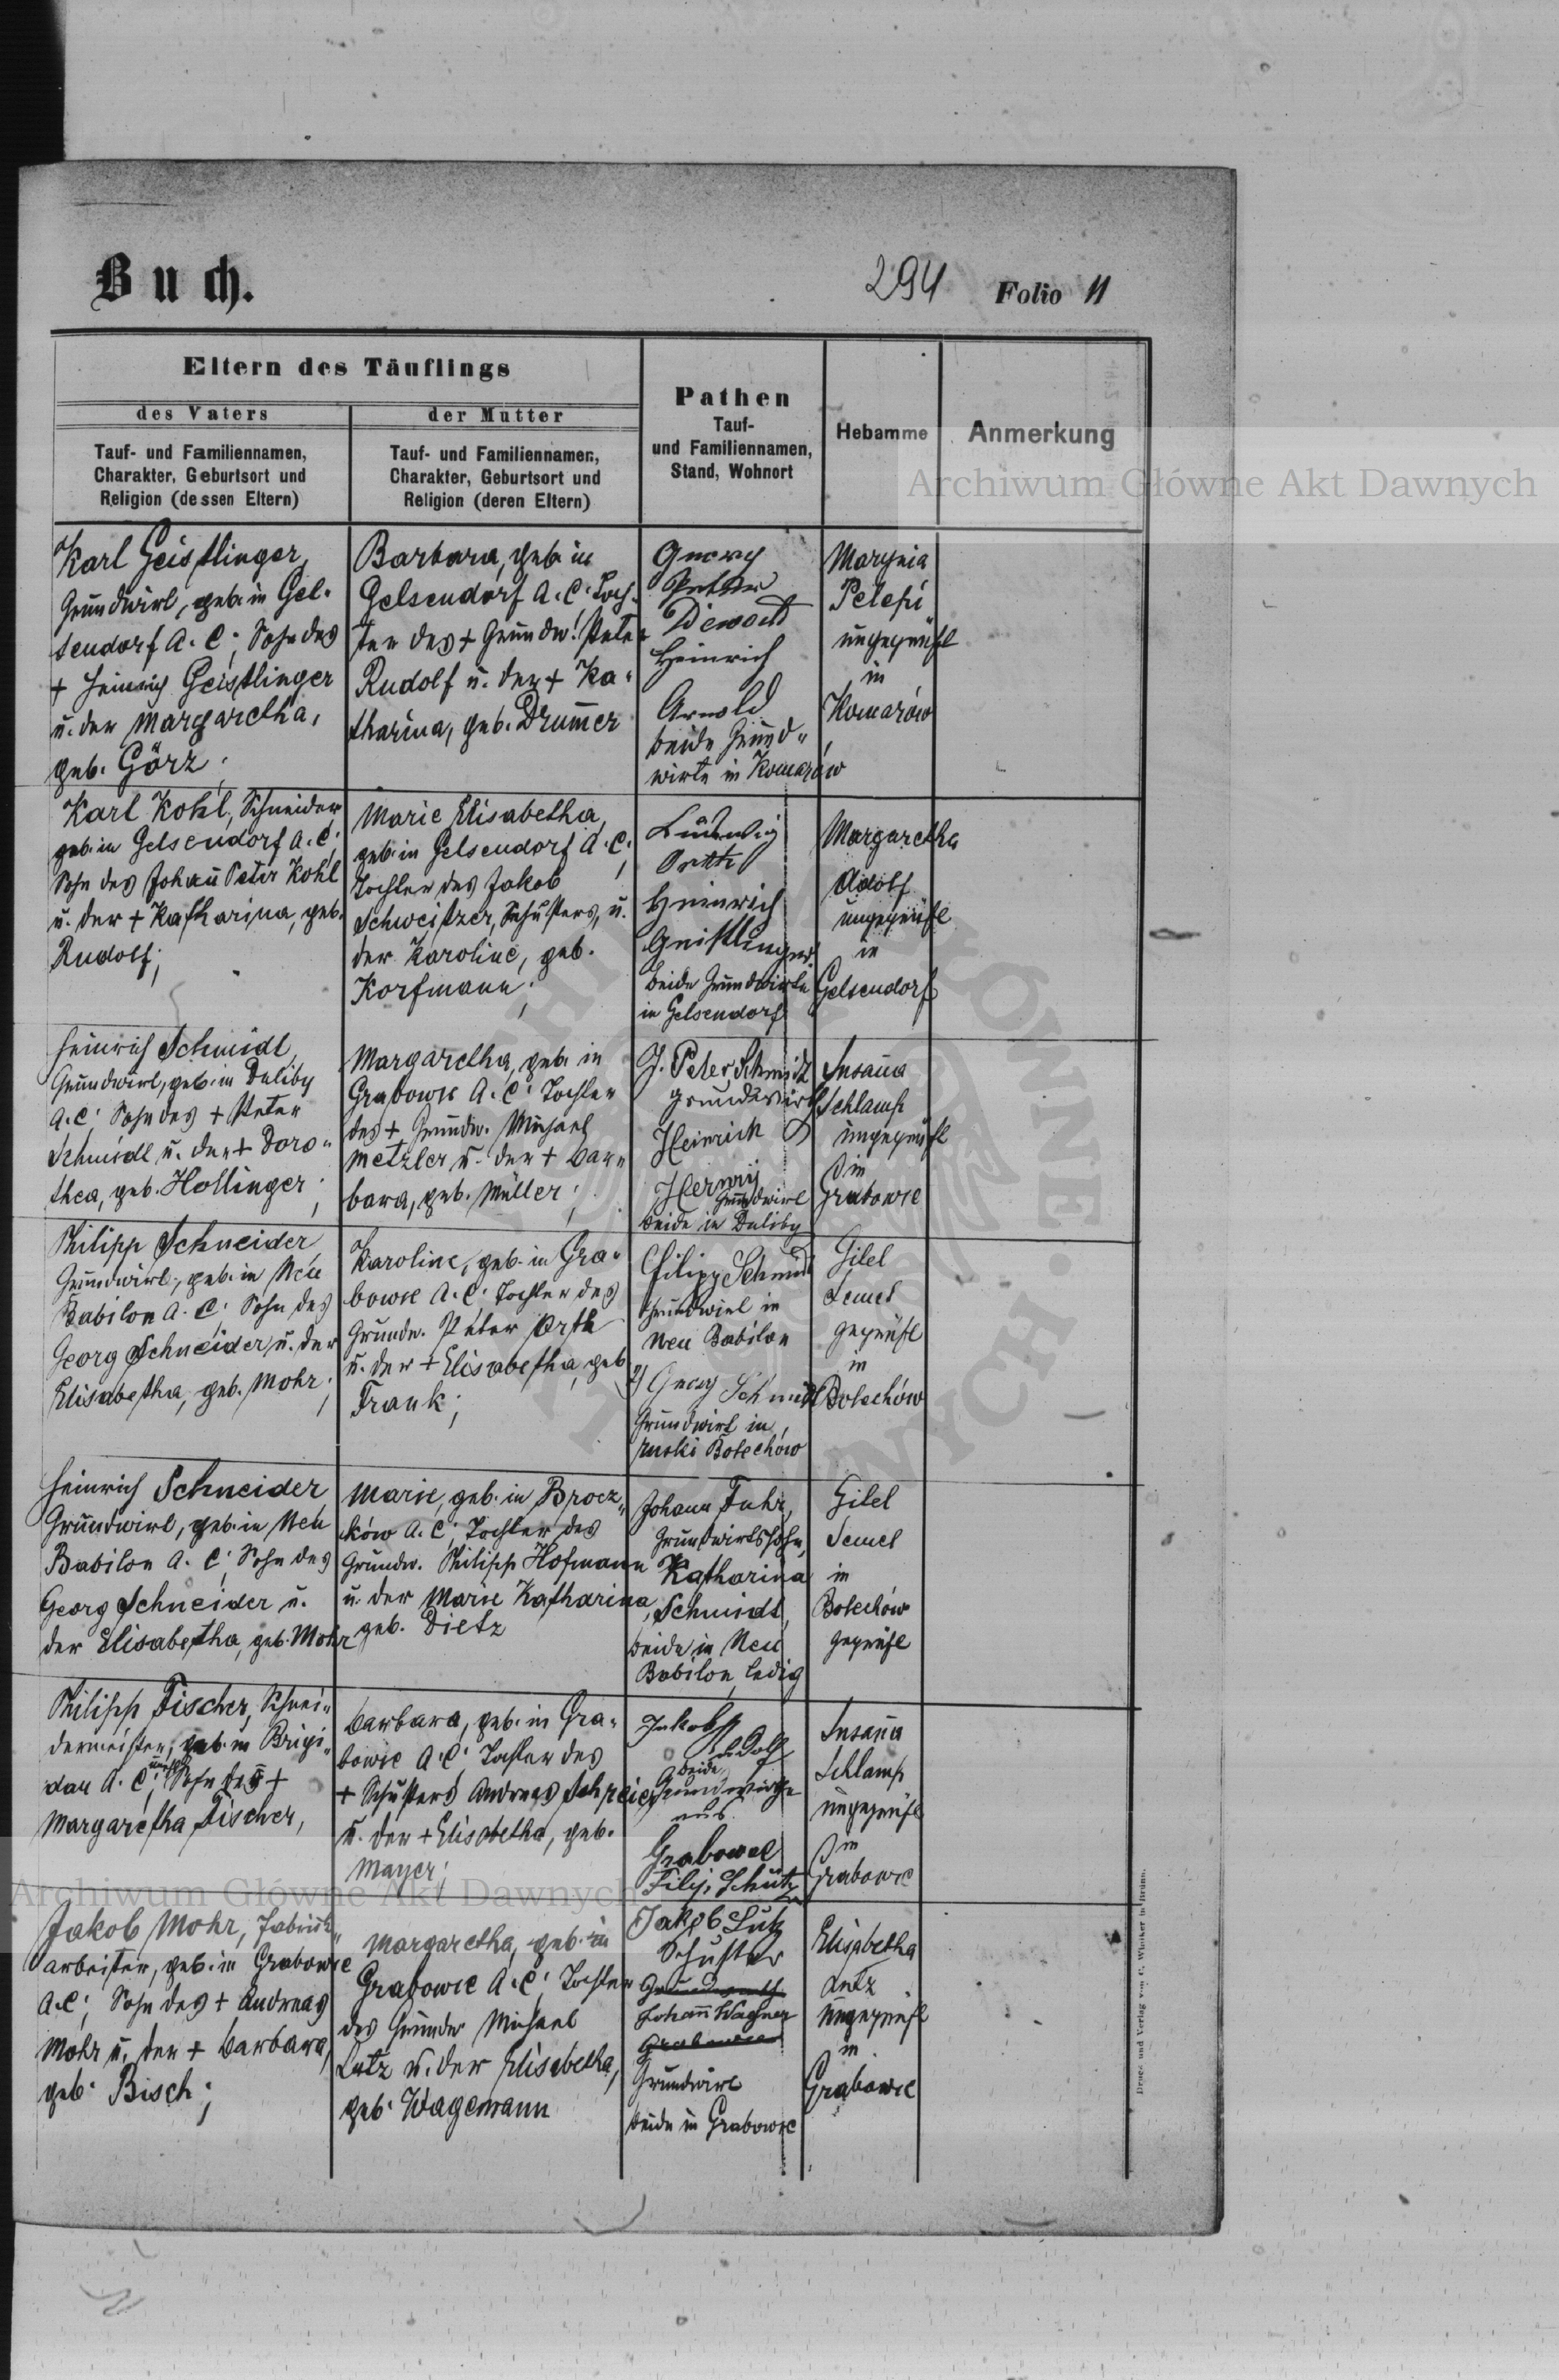 Buch.
294 Folio 11
Eltern des Täuflings
des Vaters
Tauf- und Familiennamen,
Charakter, Geburtsort und
Religion (dessen Eltern)
der Mutter
Tauf- und Familiennamen,
Charakter, Geburtsort und
Religion (deren Eltern)
Pathen
Tauf-
und Familiennamen,
Stand, Wohnort
Hebamme
Anmerkung
Archiwum Główne Akt Dawnych
Karl Geistlinger,
Grundwirt, geb. in Gel-
sendorf A. C; Sohn des
+ Heinrich Geistlinger
u. der Margaretha,
geb. Görz;
Barbara, geb. in
Gelsendorf A. C. Toch-
ter des + Grundw. Peter
Rudolf u. der + Ka-
tharina, geb. Drummer
Georg
Peter
Diewald
Heinrich
Arnold
beide Grund-
wirte in Komarów
Marynia
Pelepi
ungeprüft
in
Komarów
Karl Kohl, Schneider
geb. in Gelsendorf A. C;
Sohn des Johann Peter Kohl
u. der + Katharina, geb.
Rudolf;
Marie Elisabetha,
geb. in Gelsendorf A. C;
Tochter des Jakob
Schweitzer, Schusters, u.
der Karoline, geb.
Korfmann;
Ludwig
Orth
Heinrich
Geistlinger
beide Grundwirte
in Gelsendorf
Margaretha
Adolf
ungeprüft
in
Gelsendorf
Heinrich Schmidt,
Grundwirt, geb. in Duliby
A. C; Sohn des + Peter
Schmidt u. der + Doro-
thea, geb. Hollinger;
Margaretha, geb. in
Grabowie A. C; Tochter
des + Grundw. Michael
Metzler u. der + Bar-
bara, geb. Müller;
J. Peter Schmidt
Grundwirt
Heinrich
Herwig
Grundwirt
beide in Duliby
Susanna
Schlamp
ungeprüft
in
Grabowie
Philipp Schneider,
Grundwirt, geb. in Neu
Babilon A. C; Sohn des
Georg Schneider u. der
Elisabetha, geb. Mohr;
Karoline, geb. in Gra-
bowie A. C; Tochter des
Grundw. Peter Orth
u. der + Elisabetha, geb.
Frank;
Filipp Schmidt
Grundwirt in
Neu Babilon
2) Georg Schmidt
Grundwirt in
ruski Bolechów
Gitel
Semel
geprüft
in
Bolechów
Heinrich Schneider,
Grundwirt, geb. in Neu
Babilon A. C; Sohn des
Georg Schneider u.
der Elisabetha, geb. Mohr
Marie, geb. in Brocz-
ków A. C; Tochter des
Grundw. Philipp Hofmann
u. der Marie Katharina,
geb. Dietz
Johann Fuhr,
Grundwirtssohn,
Katharina
Schmidt,
beide in Neu
Babilon, ledig
Gitel
Semel
in
Bolechów
geprüft
Philipp Fischer, Schnei-
dermeister, geb. in Brigi-
dau A. C; Sohn der +
Margaretha Fischer,
Barbara, geb. in Gra-
bowie A. C; Tochter des
+ Schusters Andreas Schreier
u. der + Elisabetha, geb.
Mayer;
Jakob
Adolf
beide
Grundwirthe
aus
Grabowce
Filip Schütz
Susanna
Schlamp
ungeprüft
in
Grabowie
Archiwum Główne Akt Dawnych
Jakob Mohr, Fabriks-
arbeiter, geb. in Grabowie
A. C; Sohn des + Andreas
Mohr u. der + Barbara,
geb. Bisch;
Margaretha, geb. in
Grabowie A. C; Tochter
des Grundw. Michael
Lutz u. der Elisabetha,
geb. Wagemann
Jakob Lutz
Schuster
Johann Wagner
Grundwirt
beide in Grabowie
Elisabetha
Lutz
ungeprüft
in
Grabowie